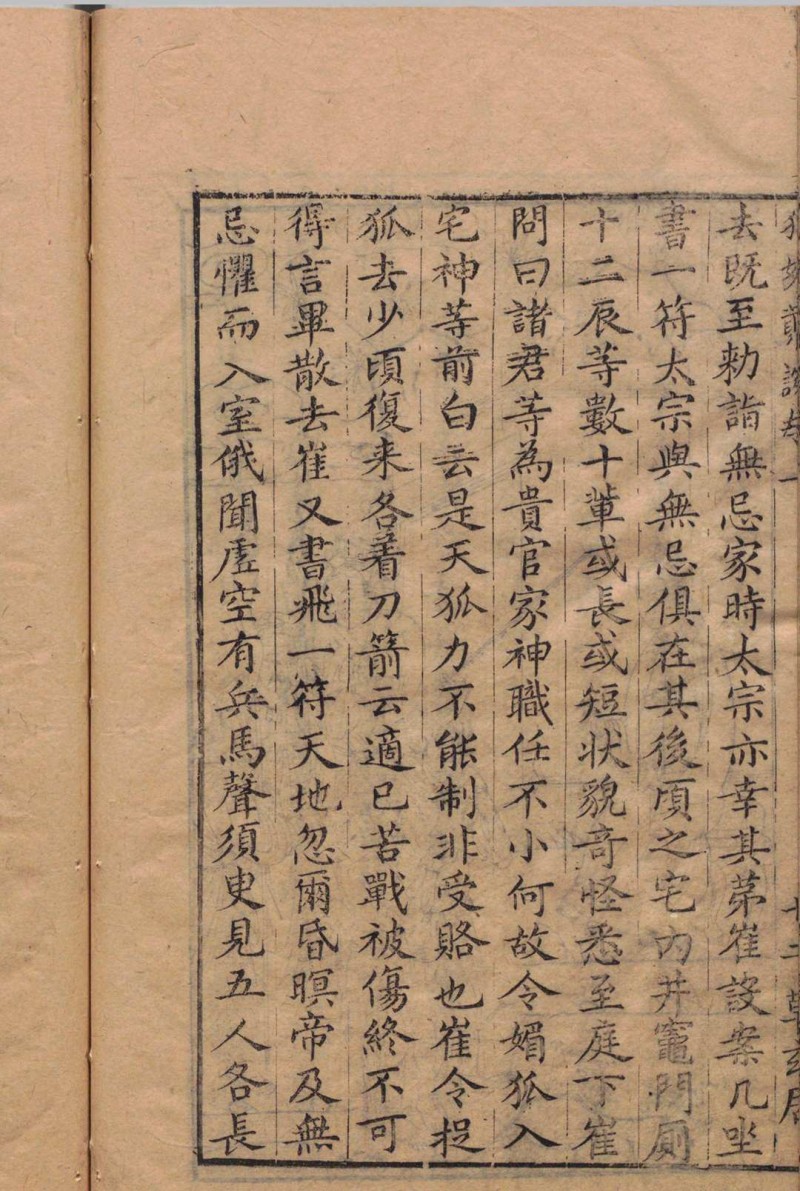 去既至勑詣無忌家時太宗亦幸其苐崔設案几坐
書一符太宗與無忌俱在其後頃之宅内井竈門厠
十二辰等數十輩或長或短状貌奇怪悉至庭下崔
問曰諸君等為貴官家神職任不小何故令媚狐入
宅神等前白云是天狐力不能制非受賂也崔令捉
狐去少頃復来各着刀箭云適已苦戰被傷終不可
得言畢散去崔又書飛一符天地忽爾昏暝帝及無
忌懼而入室俄聞虚空有兵馬聲須臾見五人各長